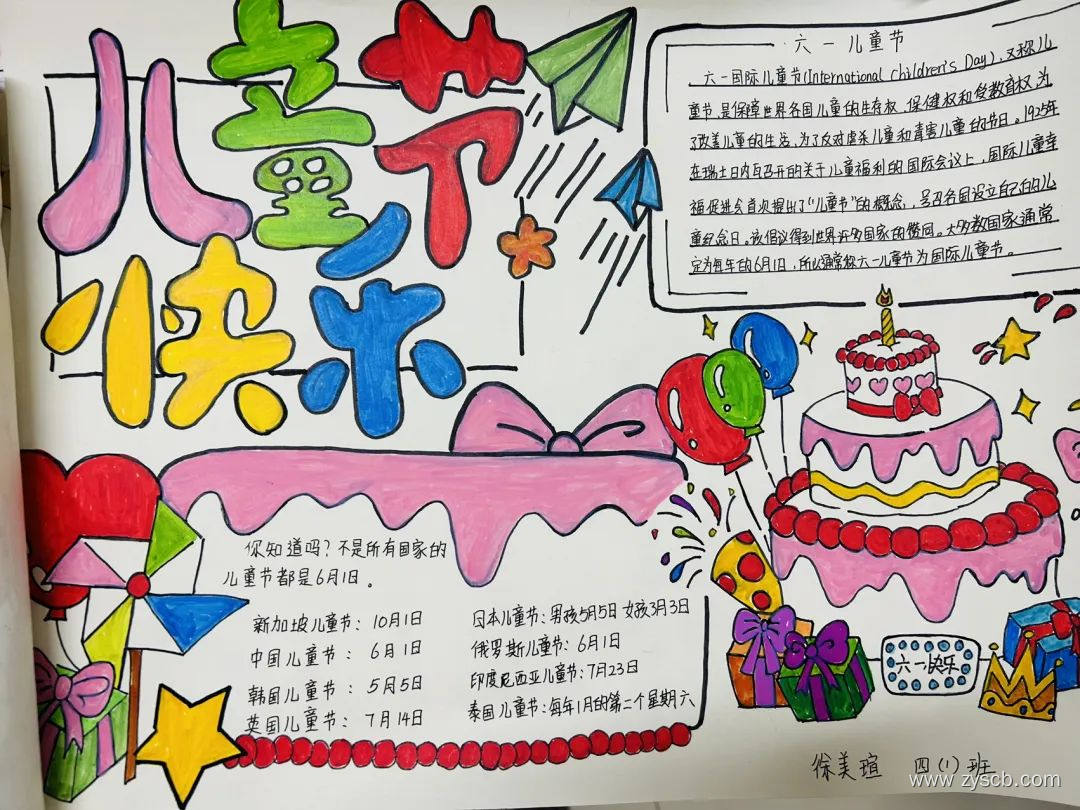 儿童节
快乐
六一儿童节
六一国际儿童节(International Children's Day)，又称儿
童节，是保障世界各国儿童的生存权、保健权和受教育权，为
了改善儿童的生活，为了反对虐杀儿童和毒害儿童的节日。1925年
在瑞士日内瓦召开的关于儿童福利的国际会议上，国际儿童幸
福促进会首次提出了"儿童节"的概念，号召各国设立自己的儿
童纪念日。该倡议得到世界许多国家的赞同。大多数国家通常
定为每年的6月1日，所以通常称六一儿童节为国际儿童节。
你知道吗？不是所有国家的
儿童节都是6月1日。
新加坡儿童节：10月1日
中国儿童节：6月1日
韩国儿童节：5月5日
英国儿童节：7月14日
日本儿童节：男孩5月5日 女孩3月3日
俄罗斯儿童节：6月1日
印度尼西亚儿童节：7月23日
泰国儿童节：每年1月的第二个星期六
六一快乐
徐美瑄 四(1)班
www.zyscb.com